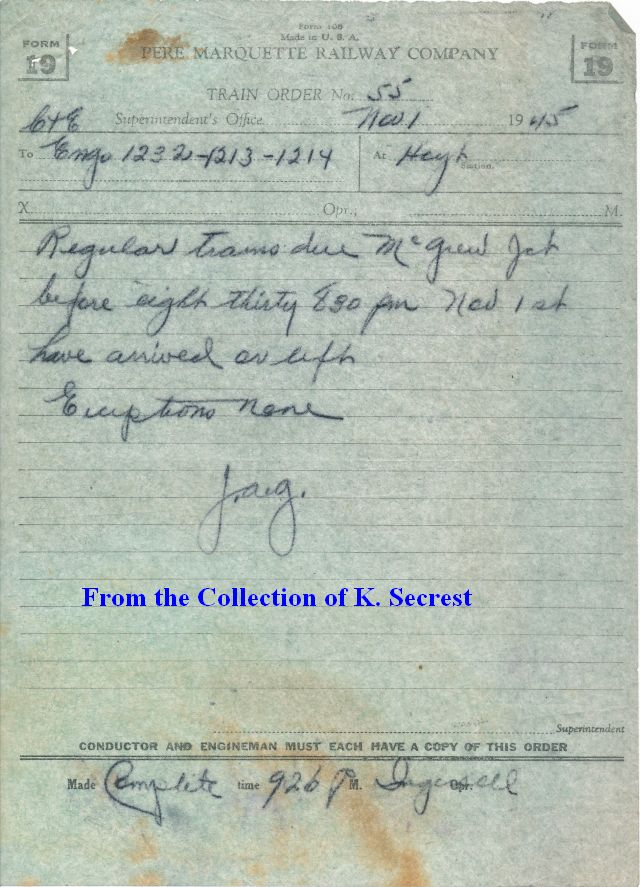 Form 108
Made in U. S. A.
FORM 19 PERE MARQUETTE RAILWAY COMPANY FORM 19
TRAIN ORDER No. 55
C&E Superintendent's Office Nov 1 1945
To Engs 1232-1213-1214 At Hoyt Station.
X Opr., M.
Regular trains due McGrew Jct
before eight thirty 830 pm Nov 1st
have arrived or left
Exceptions None
J.A.G.
From the Collection of K. Secrest
Superintendent
CONDUCTOR AND ENGINEMAN MUST EACH HAVE A COPY OF THIS ORDER
Made Complete time 926 P M. Ingersoll Opr.